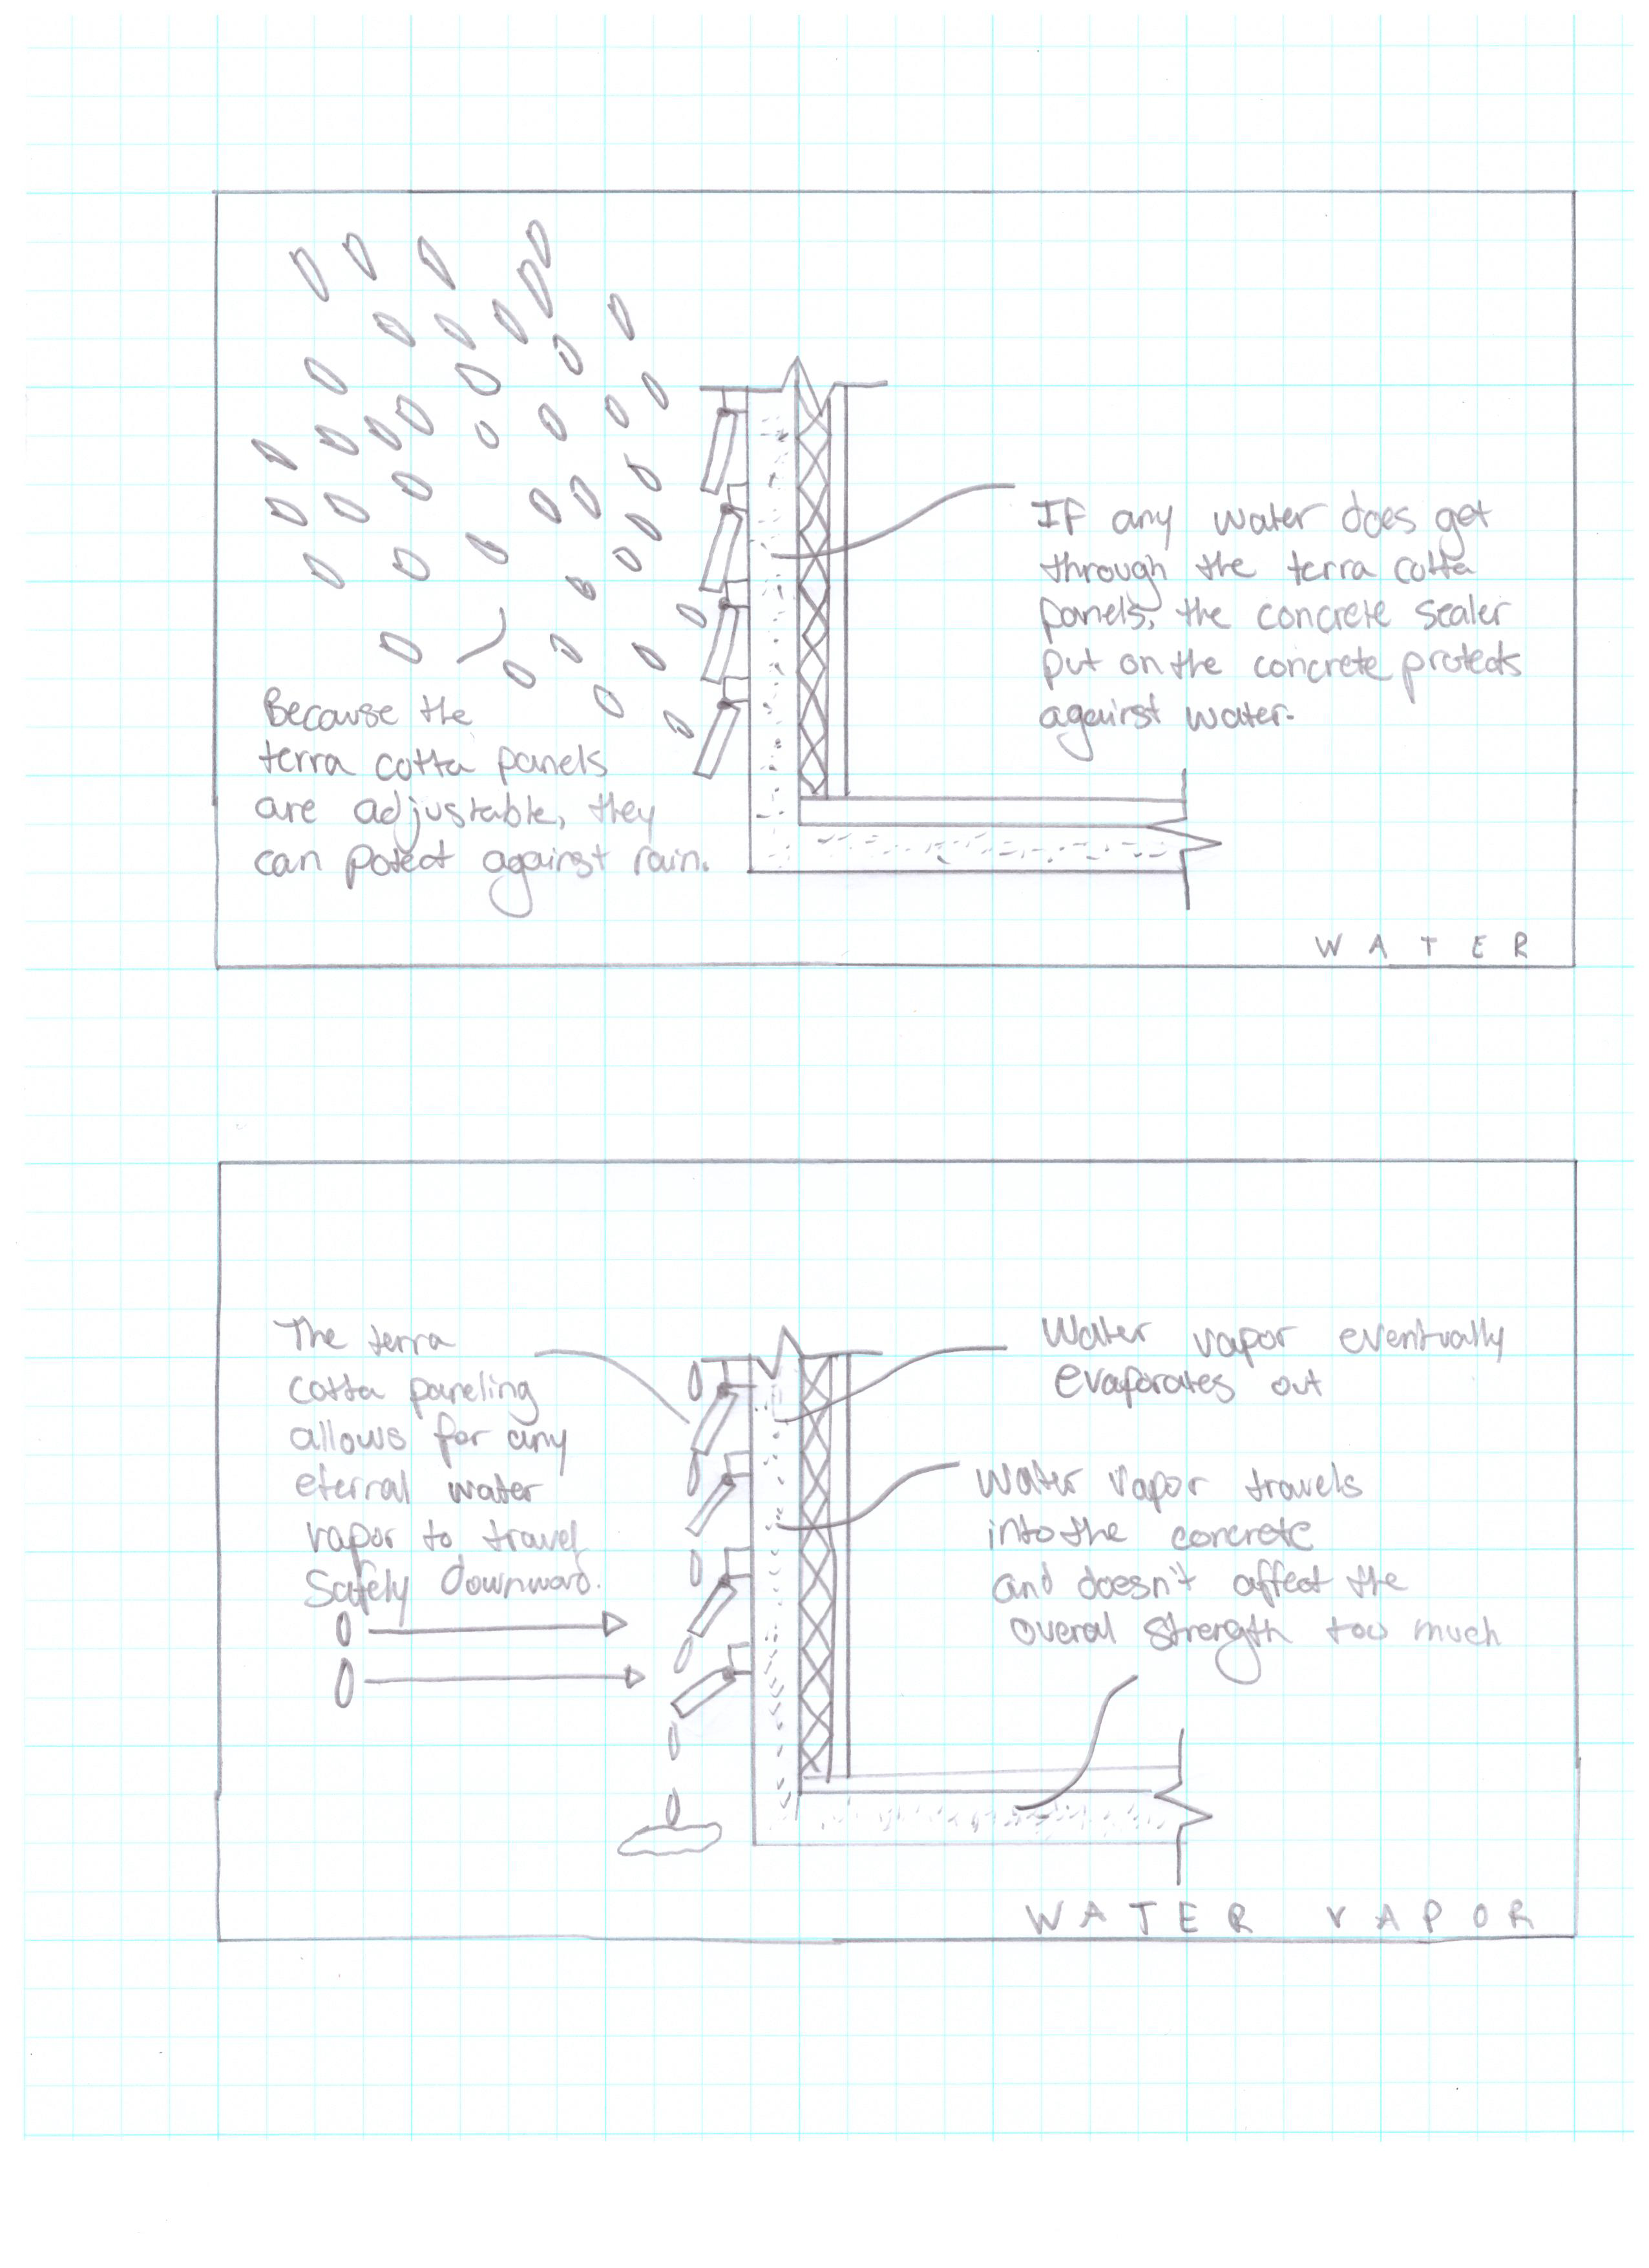 Because the
terra cotta panels
are adjustable, they
can potect against rain.
If any water does get
through the terra cotta
panels, the concrete sealer
put on the concrete protects
against water.
WATER
The terra
cotta paneling
allows for any
eternal water
vapor to travel
safely downward.
Water vapor eventually
evaporates out
Water vapor travels
into the concrete
and doesn't affect the
overal strength too much
WATER VAPOR